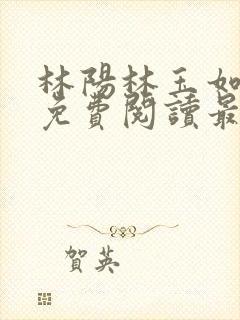 林陽林玉如
免費閱讀最
賀英